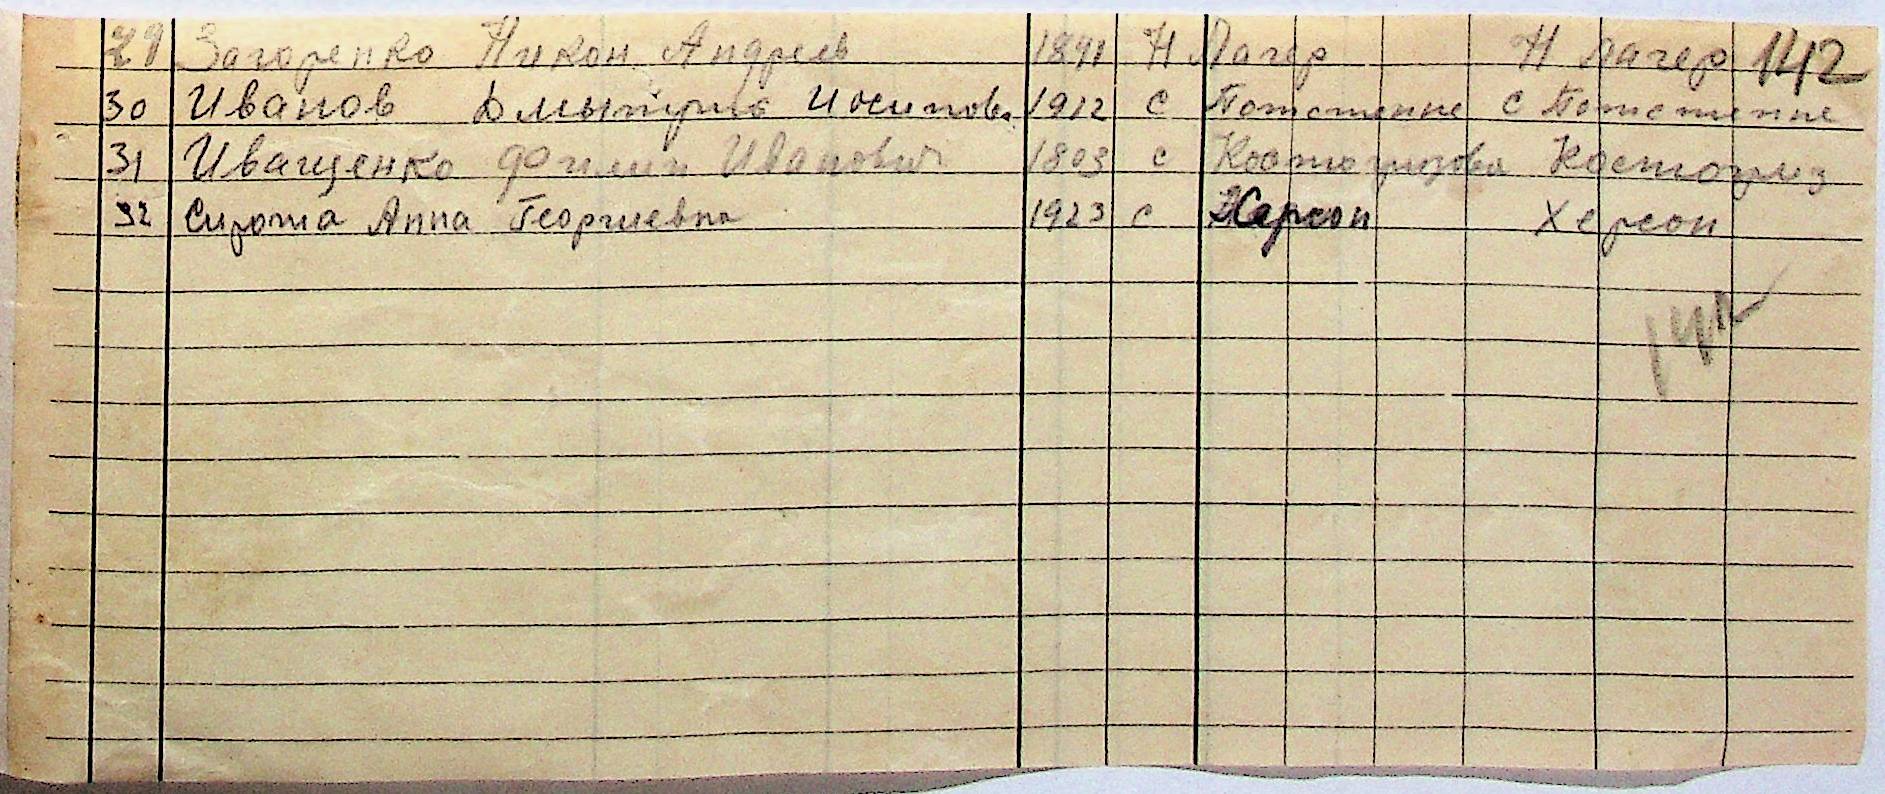 29 Загоренко Никон Андреев 1891 Н Лагер Н Лагер 142
30 Иванов Дмытрик Иосипов. 1912 с Потстепне с Потстепне
31 Иващенко Филип Иванович 1803 с Костогризова Костогриз
32 Сирота Анна Георгиевна 1923 с Херсон Херсон
142